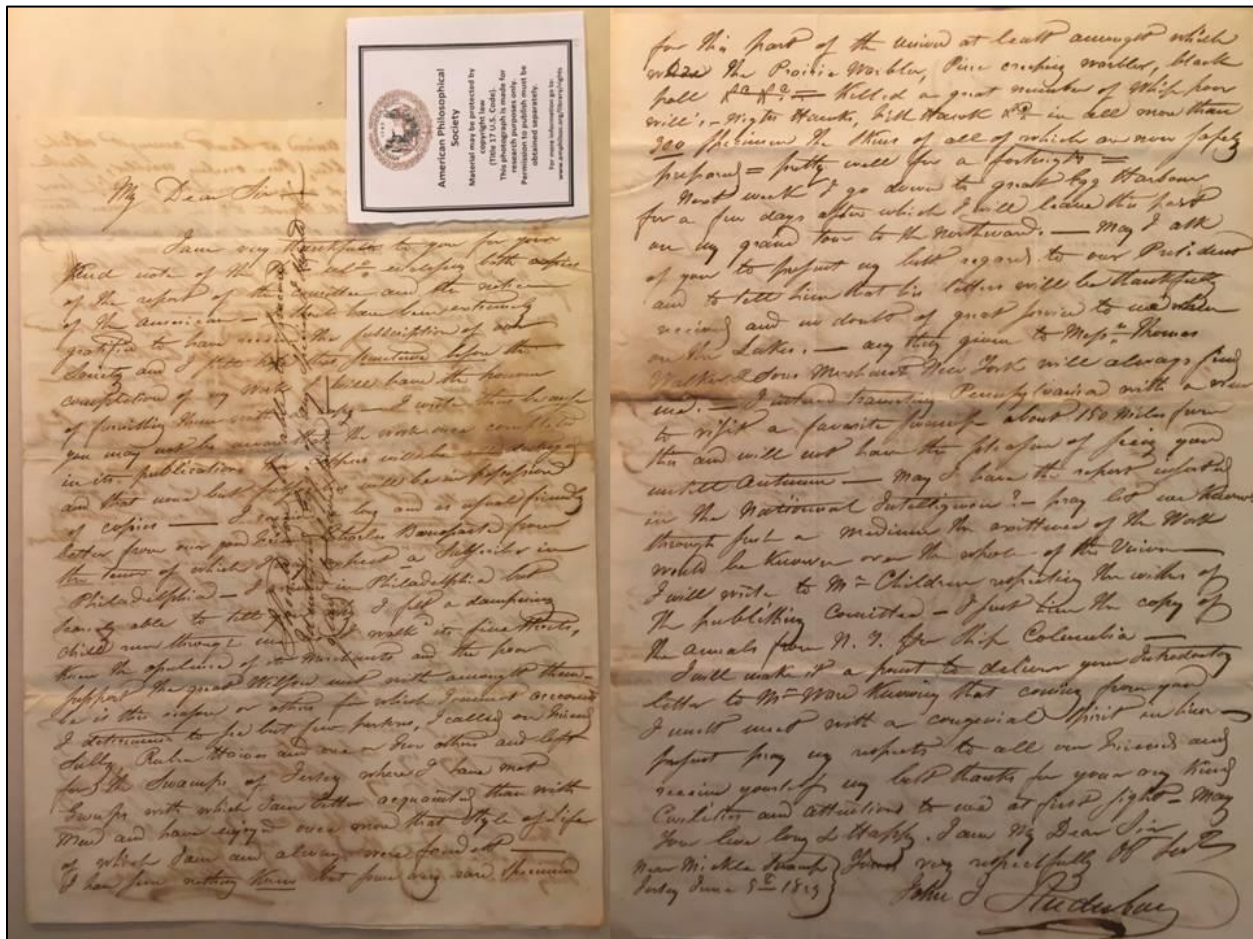 American Philosophical
Society
Material may be protected by
copyright law
(Title 17 U.S. Code).
This photograph is made for
research purposes only.
Permission to publish must be
obtained separately.
For more information go to:
www.amphilsoc.org/library/rights
My Dear Sir
I am very thankful to you for your
kind note of the enveloping both copies
of the report of the committee and the notice
of the American — I should have been extremely
gratified to have the subscription of our
Society and I before the
completion of my Work I will have the honour
of them with copy — I write thus because
you may not be aware the work once completed
in its publication the Coppers will be
and that were but will be in possession
of copies — I long and as usual friendly
letter from our good friend Charles Bonaparte from
the tenor of which I expect a Subscriber in
Philadelphia — I in Philadelphia but
scarcely able to tell why I felt a dampening
chill run through me I walked its fine streets,
Knew the opulence of its Merchants and the poor
support the great Wilson met with amongst them —
be it this reason or others for which I cannot account
I determined to see but few persons, I called on friend
Sully, Ruben Haines and one or two others and left
for the Swamps of Jersey where I have met
with which I am better acquainted than with
Men and have enjoyed once more that style of Life
of which I am and always were fondest —
I have seen nothing Knew but some very rare specimens
for this part of the union at least amongst which
were the Prairie Warbler, Pine creeping warbler, black
poll &c &c — Killed a great number of Whip poor
will's — Nights Hawks, Fish Hawk &c in all more than
200 Specimen the skins of all of which are now safely
prepared = pretty well for a fortnight =
Next week I go down to great Egg Harbour
for a few days after which I will leave this part
on my grand tour to the northward. — May I ask
of you to present my best regards to our President
and to tell him that his letters will be thankfully
received and no doubt of great service to me when
on the Lakes. — any thing given to Messrs Thomas
Walker & Sons Merchants New York will always find
me. — I intend traversing Pennsylvania with a view
to visit a favorite about 150 Miles from
this and will not have the pleasure of seeing you
untill Autumn — May I have the report inserted
in the National Intelligencer? — pray let me Know
through such a medium the existence of the Work
would be Known over the whole of the Union —
I will write to Mr Children respecting the wishes of
the publishing Committee — I sent him the copy of
the annals from N. Y. per Ship Columbia —
I will make it a point to deliver your Introductory
letter to Mr Ward Knowing that coming from you
I must meet with a congenial Spirit in him —
present pray my respects to all our friends and
receive yourself my best thanks for your very Kind
Civilities and attentions to me at first sight — May
You live long & Happy. I am My Dear Sir
Near Mickle Swamp Yours very respectfully Ob Sert
Jersey June 5th 1829 John J Audubon